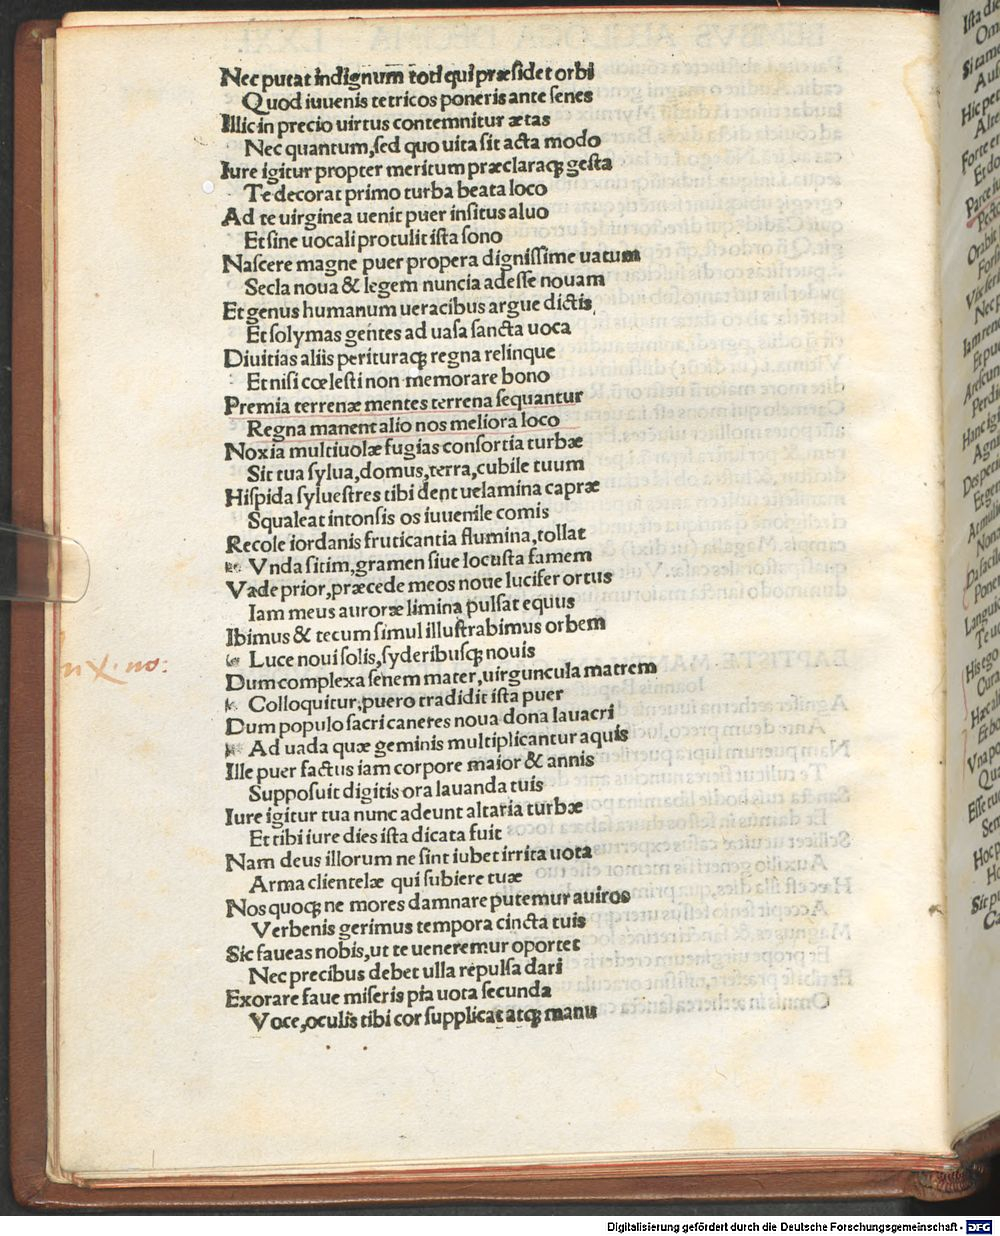 Nec putat indignum toti qui præsidet orbi
Quod iuuenis tetricos poneris ante senes
Illic in precio uirtus contemnitur ætas
Nec quantum, sed quo uita sit acta modo
Iure igitur propter meritum præclaraqꝫ gesta
Te decorat primo turba beata loco
Ad te uirginea uenit puer insitus aluo
Et sine uocali protulit ista sono
Nascere magne puer propera dignissime uatum
Secla noua & legem nuncia adesse nouam
Et genus humanum ueracibus argue dictis,
Et solymas gentes ad uasa sancta uoca
Diuitias aliis perituraqꝫ regna relinque
Et nisi cœlesti non memorare bono
Premia terrenæ mentes terrena sequantur
Regna manent alio nos meliora loco
Noxia multiuolæ fugias consortia turbæ
Sit tua sylua, domus, terra, cubile tuum
Hispida syluestres tibi dent uelamina capræ
Squaleat intonsis os iuuenile comis
Recole iordanis fruticantia flumina, tollat
Vnda sitim, gramen siue locusta famem
Vade prior, præcede meos noue lucifer ortus
Iam meus auroræ limina pulsat equus
Ibimus & tecum simul illustrabimus orbem
Luce noui solis, syderibusqꝫ nouis
Dum complexa senem mater, uirguncula matrem
n X. no:
Colloquitur, puero tradidit ista puer
Dum populo sacri caneres noua dona lauacri
Ad uada quæ geminis multiplicantur aquis
Ille puer factus iam corpore maior & annis
Supposuit digitis ora lauanda tuis
Iure igitur tua nunc adeunt altaria turbæ
Et tibi iure dies ista dicata fuit
Nam deus illorum ne sint iubet irrita uota
Arma clientelæ qui subiere tuæ
Nos quoqꝫ ne mores damnare putemur auiros
Verbenis gerimus tempora cincta tuis
Sic faueas nobis, ut te ueneremur oportet
Nec precibus debet ulla repulsa dari
Exorare faue miseris pia uota secunda
Voce, oculis tibi cor supplicat atqꝫ manu
Digitalisierung gefördert durch die Deutsche Forschungsgemeinschaft - DFG